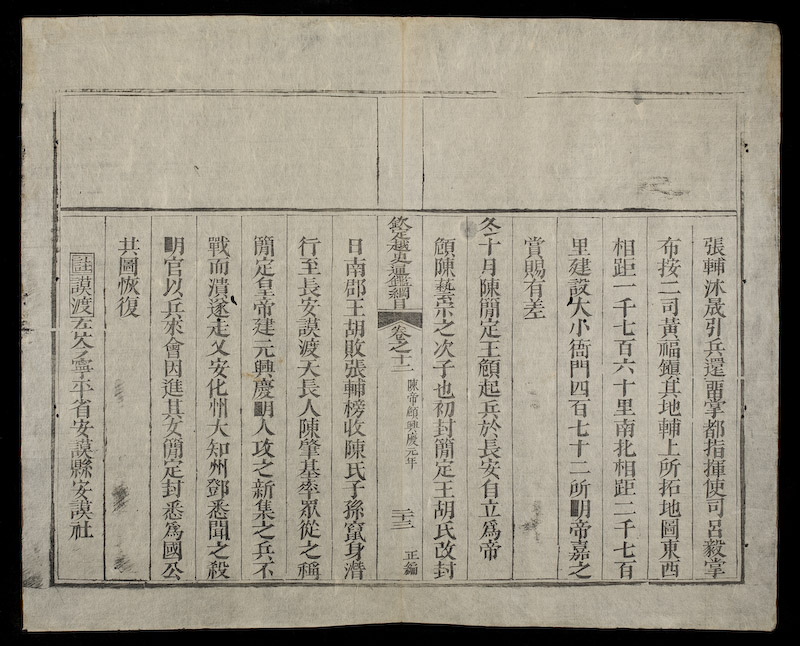 張輔沐晟引兵還畱掌都指揮使司呂毅掌
布按二司黃福鎭其地輔上所拓地圖東西
相距一千七百六十里南北相距二千七百
里建設大小衙門四百七十二所明帝嘉之
賞賜有差
冬十月陳簡定王頠起兵於長安自立爲帝
頠陳藝宗之次子也初封簡定王胡氏改封
欽定越史通鑑綱目 卷之十二 陳帝頠興慶元年 二十三 正編
日南郡王胡敗張輔榜收陳氏子孫竄身潛
行至長安謨渡天長人陳肇基率眾從之稱
簡定皇帝建元興慶明人攻之新集之兵不
戰而潰遂走乂安化州大知州鄧悉聞之殺
明官以兵來會因進其女簡定封悉爲國公
共圖恢復
註謨渡在今寧平省安謨縣安謨社